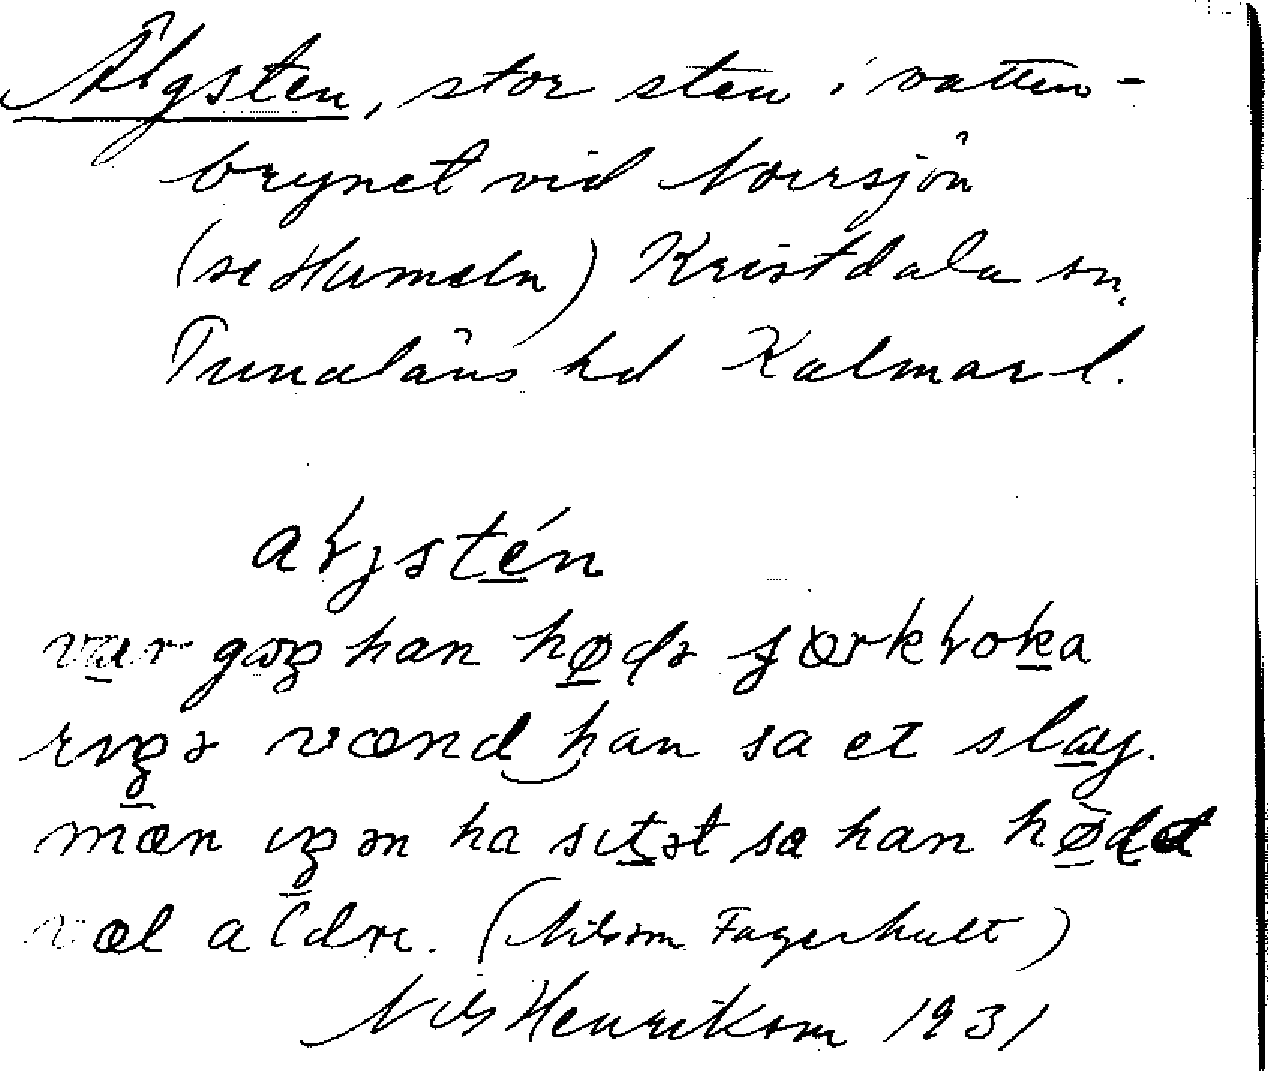 Älgsten, stor sten i vatten-
brynet vid Norrsjön
(se Humeln) Kristdala sn,
Tunaläns hd Kalmar l.
aɽjstén
var gɷŋ han høɖə ʃørkɽoka
rıŋə vænd han sa et slag.
mæn ıŋən ha sıtət sa han høɖət
væl aldrı. (Nilsson Fagerhult)
Nils Henrikson 1931